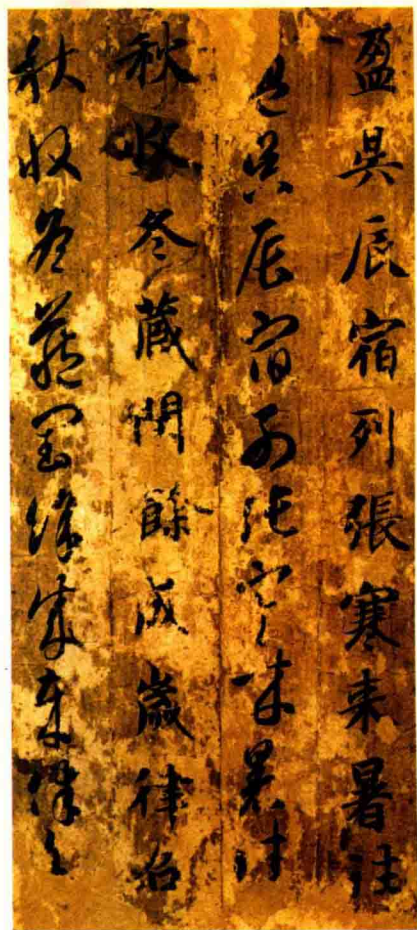 盈昃辰宿列張寒来暑往
盈昃辰宿列張寒来暑往
秋收冬蔵閏餘成歲律召
秋收冬蔵閏餘成歲律召